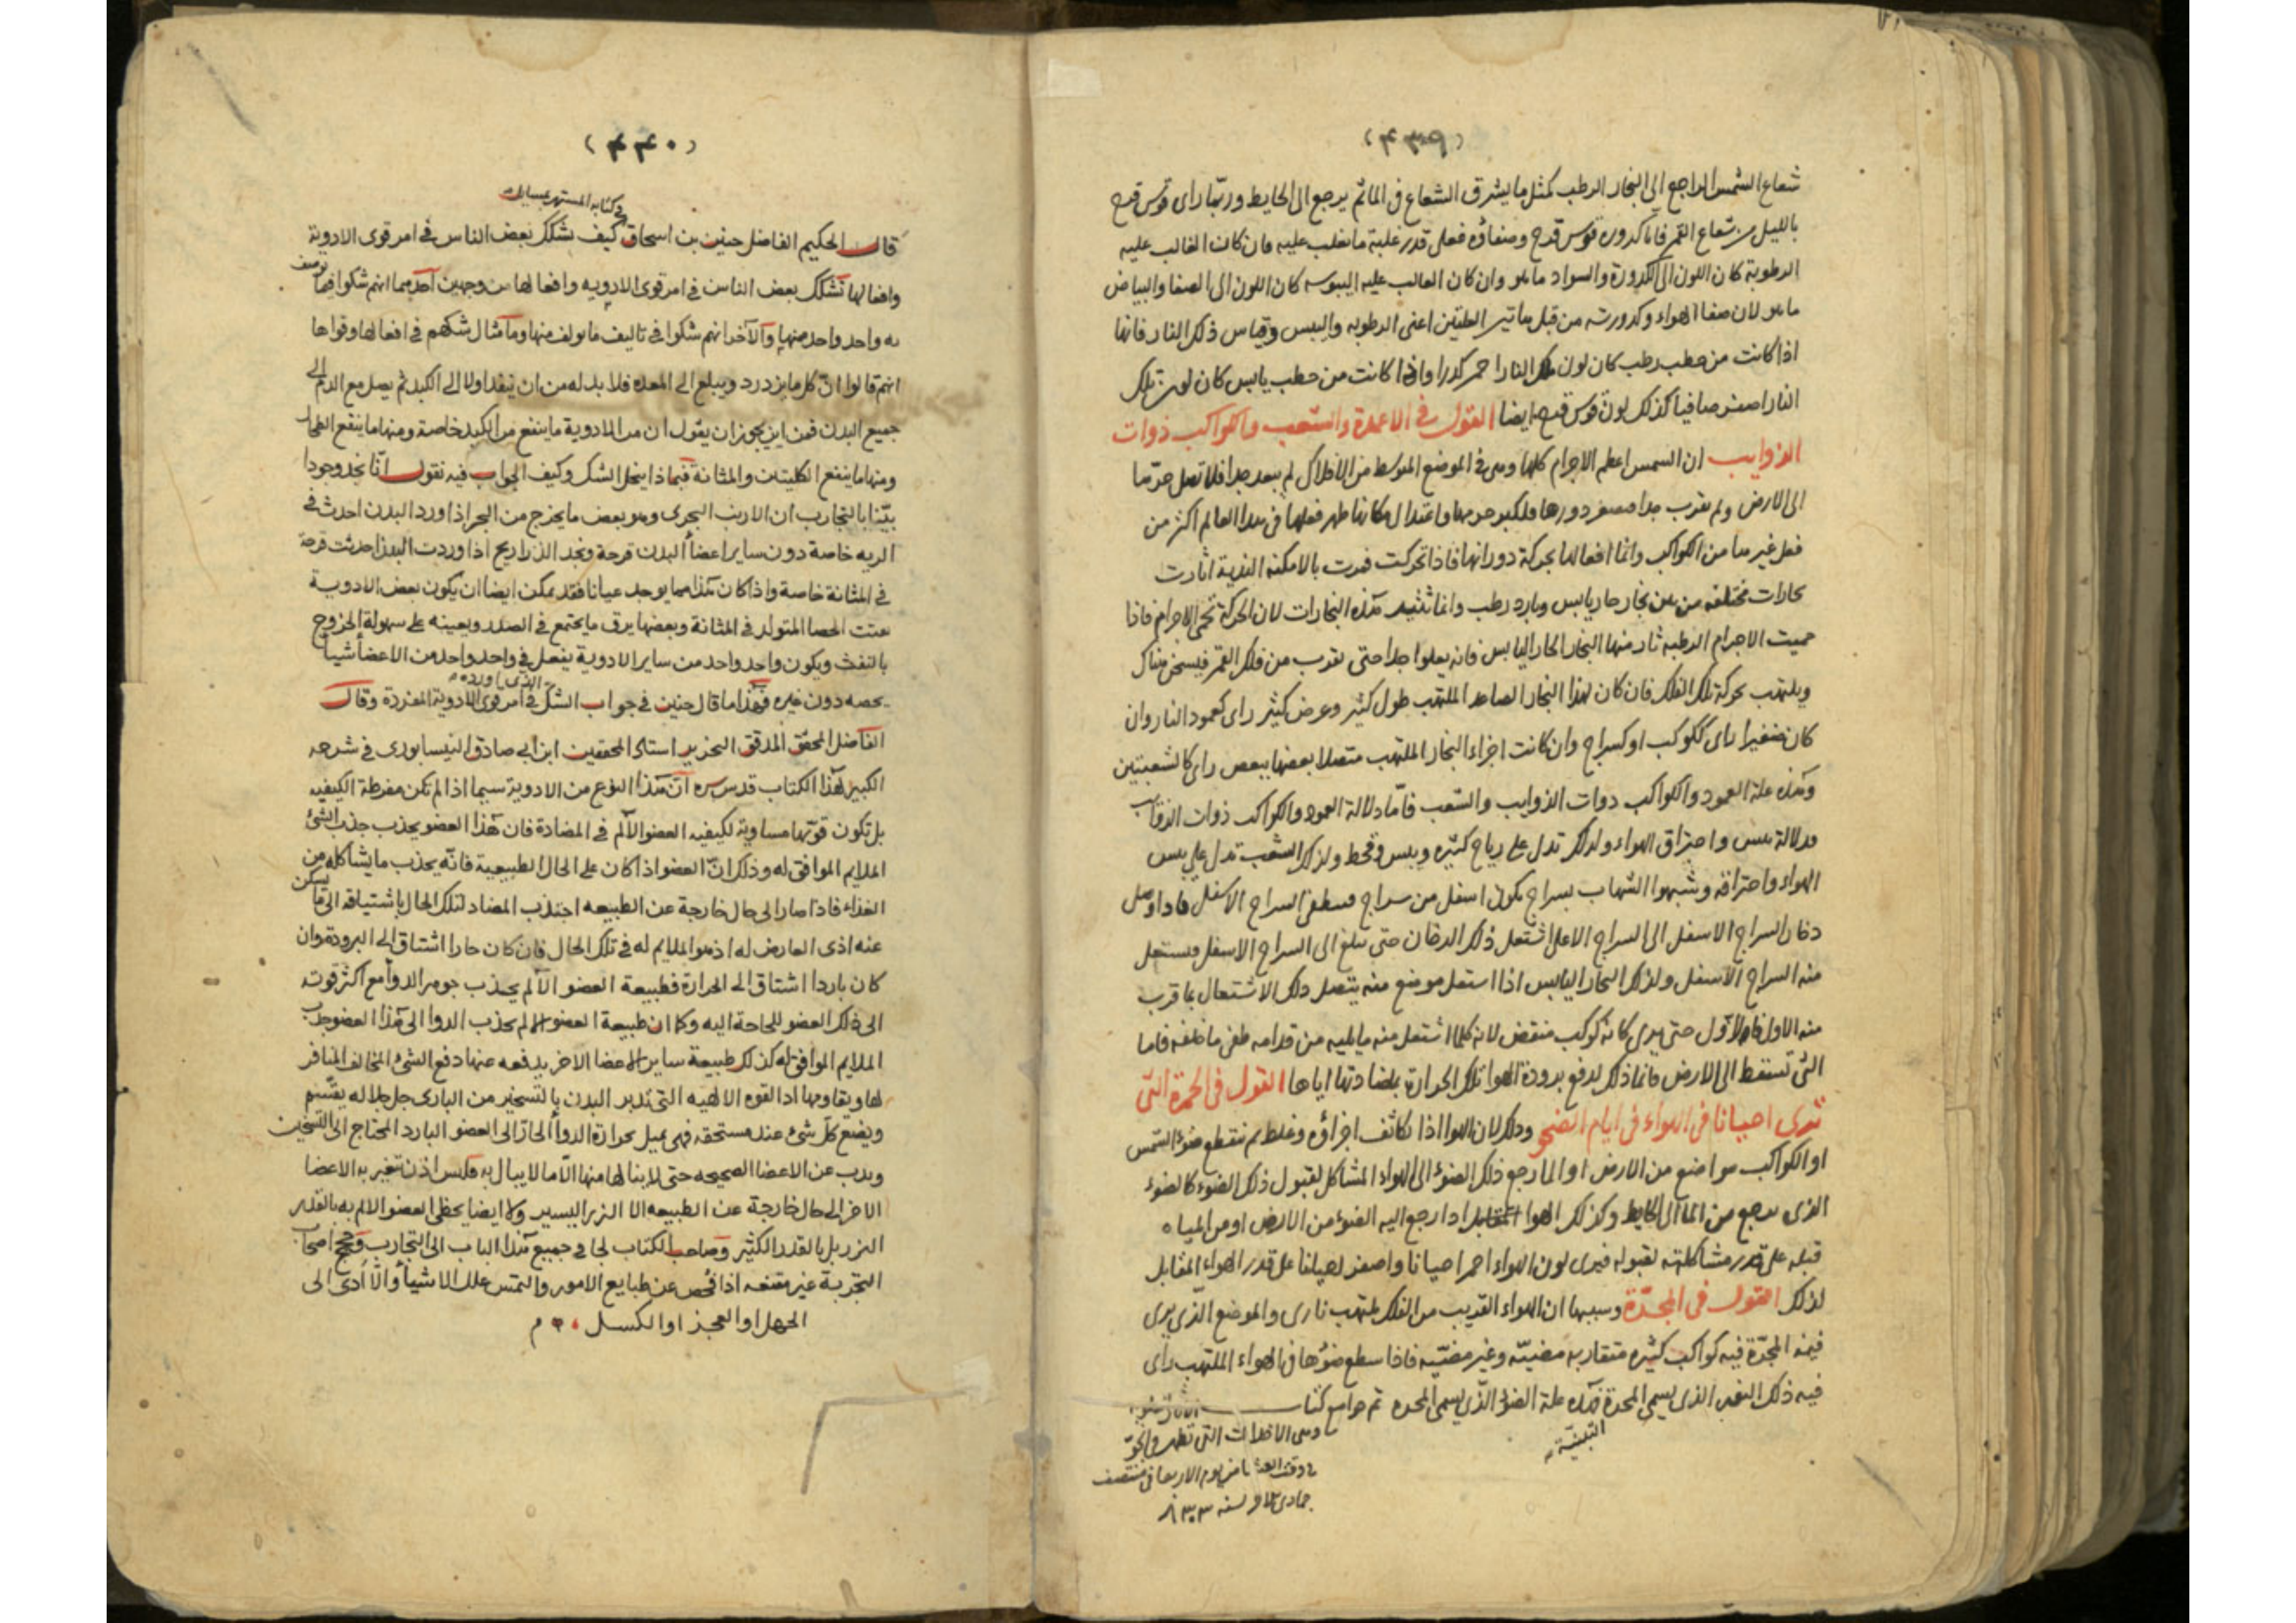 (٤٣٩)
شعاع الشمس الراجع الى البخار الرطب كمثل ما يشرق الشعاع فى الماء ثم يرجع الى الحايط وربما راى قوس قزح
بالليل من شعاع القمر فاما كدورة قوس قزح وصفاؤه فعلى قدر غلبة ما يغلب عليه فان كان الغالب عليه
الرطوبة كان اللون الى الكدورة والسواد ما هو وان كان الغالب عليه اليبوسه كان اللون الى الصفا والبياض
ما هو لان صفا الهواء وكدورته من قبل هاتين العلتين اعنى الرطوبه واليبس وقياس ذلك النار فانها
اذا كانت من حطب رطب كان لون تلك النار احمر كدرا واذا كانت من حطب يابس كان لون تلك
النار اصفر صافيا كذلك لون قوس قزح ايضا القول فى الاعمدة والشعب والكواكب ذوات
الذوايب ان الشمس اعظم الاجرام كلها وهى فى الموضع المتوسط من الافلاك لم يبعد جدا فلا تصل حرتها
الى الارض ولم تقرب جدا فصغر دورها فلكبر جرمها واعتدال مكانها ظهر فعلها فى هذا العالم اكثر من
فعل غيرها من الكواكب وانما افعالها بحركة دورانها فاذا تحركت فمرت بالامكنة الندية اثارت
بخارات مختلفه من بين بخار حار يابس وبارد رطب وانما تثير هذه البخارات لان الحركة تحمى الاجرام فاذا
حميت الاجرام الرطبه ثار منها البخار الحار اليابس فانه يعلوا جدا حتى يقرب من فلك القمر فيسخن هناك
ويلتهب بحركة تلك الفلك فان كان لهذا البخار الصاعد الملتهب طول كثير وعرض كثير راى كعمود النار وان
كان صغيرا راى ككوكب او كسراج وان كانت اجزاء البخار الملتهب متصلا بعضها ببعض راى كالشعبتين
وهذه علة العمود والكواكب ذوات الذوايب والشعب فاما دلالة العمود والكواكب ذوات الذوايب
فدلالة يبس واحتراق الهواء ولذلك تدل على رياح كثيره ويبس وقحط ولذلك الشعب تدل على يبس
الهواء واحتراقه وشبهوا الشهاب بسراج يكون اسفل من سراج فينطفى السراج الاسفل فاذا وصل
دخان السراج الاسفل الى السراج الاعلى اشتعل ذلك الدخان حتى يبلغ الى السراج الاسفل فيشتعل
منه السراج الاسفل ولذلك البخار اليابس اذا اشتعل موضع منه يتصل ذلك الاشتعال بما قرب
منه الاول فالاول حتى يرى كانه كوكب منقض لانه كلما اشتعل منه ما يليه من قدامه طفى ما خلفه فاما
التى تسقط الى الارض فانما ذلك لدفع برودة الهوا تلك الحرارة بمضادتها اياها القول فى الحمرة التى
ترى احيانا فى الهواء فى ايام الصحو وذلك لان الهوا اذا تكاثف اجزاؤه وغلظ ثم ينقطع ضوء الشمس
او الكواكب مواضع من الارض او الما رجع ذلك الضوء الى الهواء المشاكل لقبول ذلك الضوء كالضوء
الذى يرجع من الما الى الحايط وكذلك الهوا المقابل اذا رجع اليه الضوء من الارض او من المياه
قبله على قدر مشاكلته لقبوله فيرى لون الهواء احمر احيانا واصفر احيانا على قدر الهواء المقابل
لذلك القول فى المجرّة وسببها ان الهواء القريب من الفلك ملتهب نارى والموضع الذى يرى
فيه المجرّة فيه كواكب كثيره متقاربه مضيئه وغير مضيئه فاذا سطع ضوءها فى الهواء الملتهب راى
فيه ذلك الذى يسمى المجرة فهذه علة الضوء الذى يسمى المجره تم جوامع كتاب
وهى الاخلاات التى تظهر فى الجو
فى وقت يوم الاربعا فى منتصف
جمادى لسنه
(٤٤٠)
فى كتابه المشتهر بمسايل
قال الحكيم الفاضل حنين بن اسحاق كيف تشكك بعض الناس فى امر قوى الادوية
وافعالها تشكك بعض الناس فى امر قوى الادويه وافعالها من وجهين احدهما انهم شكوا فيما توصف
به واحد واحد منها والآخر انهم شكوا فى تاليف ما يولف منها ومآ مثال شكهم فى افعالها وقواها
انهم قالوا انّ كل ما يزدرد ويبلغ الى المعده فلا بد له من ان ينفذ اولا الى الكبد ثم يصل مع الدم الى
جميع البدن فمن اين يجوز ان يقول ان من الادوية ما ينفع من الكبد خاصة ومنها ما ينفع الطحال
ومنها ما ينفع الكليتين والمثانة فبماذا ينحل الشك وكيف الجواب فيه نقول انّا نجد وجودا
بيّنا بالتجارب ان الارنب البحرى وهو بعض ما يخرج من البحر اذا ورد البدن احدث فى
الريه خاصة دون ساير اعضأ البدن قرحة ونجد الذراريح اذا وردت البدن احدثت قرحة
فى المثانة خاصة واذا كان هذا مما يوجد عيانا فقد يمكن ايضا ان يكون بعض الادوية
يفتت الحصا المتولد فى المثانة وبعضها يرق ما يجتمع فى الصدر ويعينه على سهولة الخروج
بالنفث ويكون واحد واحد من ساير الادوية يفعل فى واحد واحد من الاعضأ شيأ
يخصه دون غيره فهذا ما قال حنين فى جواب الشك الذى اورده فى امر قوى الادوية المفردة وقال
الفاضل المحقق المدقق النحرير استاد المحققين ابن ابى صادق النيسابورى فى شرحه
الكبير لهذا الكتاب قدس سره انّ هذا النوع من الادوية سيما اذا لم تكن مفرطة الكيفيه
بل تكون قوتها مساوية لكيفيه العضو الآلم فى المضادة فان هذا العضو يجذب جذب الشئ
الملايم الموافق له وذلك انّ العضو اذا كان على الحال الطبيعية فانّه يجذب ما يشاكله من
الغذاء فاذا صار الى حال خارجة عن الطبيعه اجتذب المضاد لتلك الحال باشتياقه الى ما يسكن
عنه اذى العارض له اذ هو الملايم له فى تلك الحال فان كان حارا اشتاق الى البرودة وان
كان باردا اشتاق الى الحرارة فطبيعة العضو الآلم يجذب جوهر الدوأ مع اكثر قوته
الى ذلك العضو للحاجة اليه وكما ان طبيعة العضو الالم يجذب الدوا الى هذا العضو جذب
الملايم الموافق له كذلك طبيعة ساير الاعضا الاخر يدفعه عنها دفع الشئ المخالف المنافر
لها ويقاومها اذ القوه الالهيه التى تدبر البدن بالتسخير من البارى جل جلاله يقسّم
ويضع كل شئ عند مستحقه فهى يميل بحرارة الدوأ الحار الى العضو البارد المحتاج الى التسخين
ويذب عن الاعضا الصحيحه حتى لا ينالها منها الا ما لا يبال به فليس اذن تتغير به الاعضا
الاخر الى حال خارجة عن الطبيعه الا النزر اليسير ولا ايضا يحظى العضو الالم به بالقدر
النزر بل بالقدر الكثير وصاحب الكتاب لجا فى جميع هذا الباب الى التجارب وحجج اصحاب
التجربة غير مقنعه اذا فحص عن طبايع الامور والتمس علل الاشيأ والّا أدى الى
الجهل او العجز او الكسل م